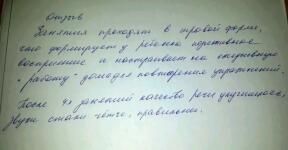 Отзыв
Занятия проходят в игровой форме,
что формирует у ребёнка позитивное
восприятие и настраивает на ежедневную
"работу" дома для повторения упражнений.
После 4х занятий качество речи улучшилось,
звуки стали чётче, правильней.